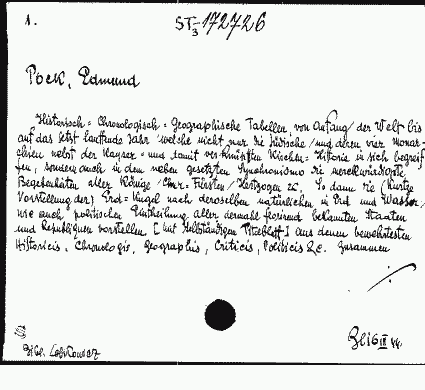 1.
ST-172726
3
Pock, Edmund
Historisch=Chronologisch=Geographische Tabellen, von Anfang/der Welt bis
auf das jetzt lauffende Jahr welche nicht nur die Jüdische/und deren vier Monar-
chien nebst der Kayser=und damit verknüpften Kirchen=Historie in sich begreif
fen, sondern auch in dem neben gesetzten Synchronismo die merckwürdigste
Begebenheiten aller Könige/Chur=Fürsten/Hertzogen ec. So dann die (kurtze
Vorstellung der) Erd=Kugel nach deroselben natürlichen in Erd und Wasser/
wie auch politischen Eintheilung aller dermahl florirend bekannten Staaten
und Republiquen vorstellen [mit selbständigen Titelblatt] aus denen bewehrtesten
Historicis, Chronologis, Geographis, Criticis, Politicis &c. zusammen
./.
Bibl. Lobkowicz